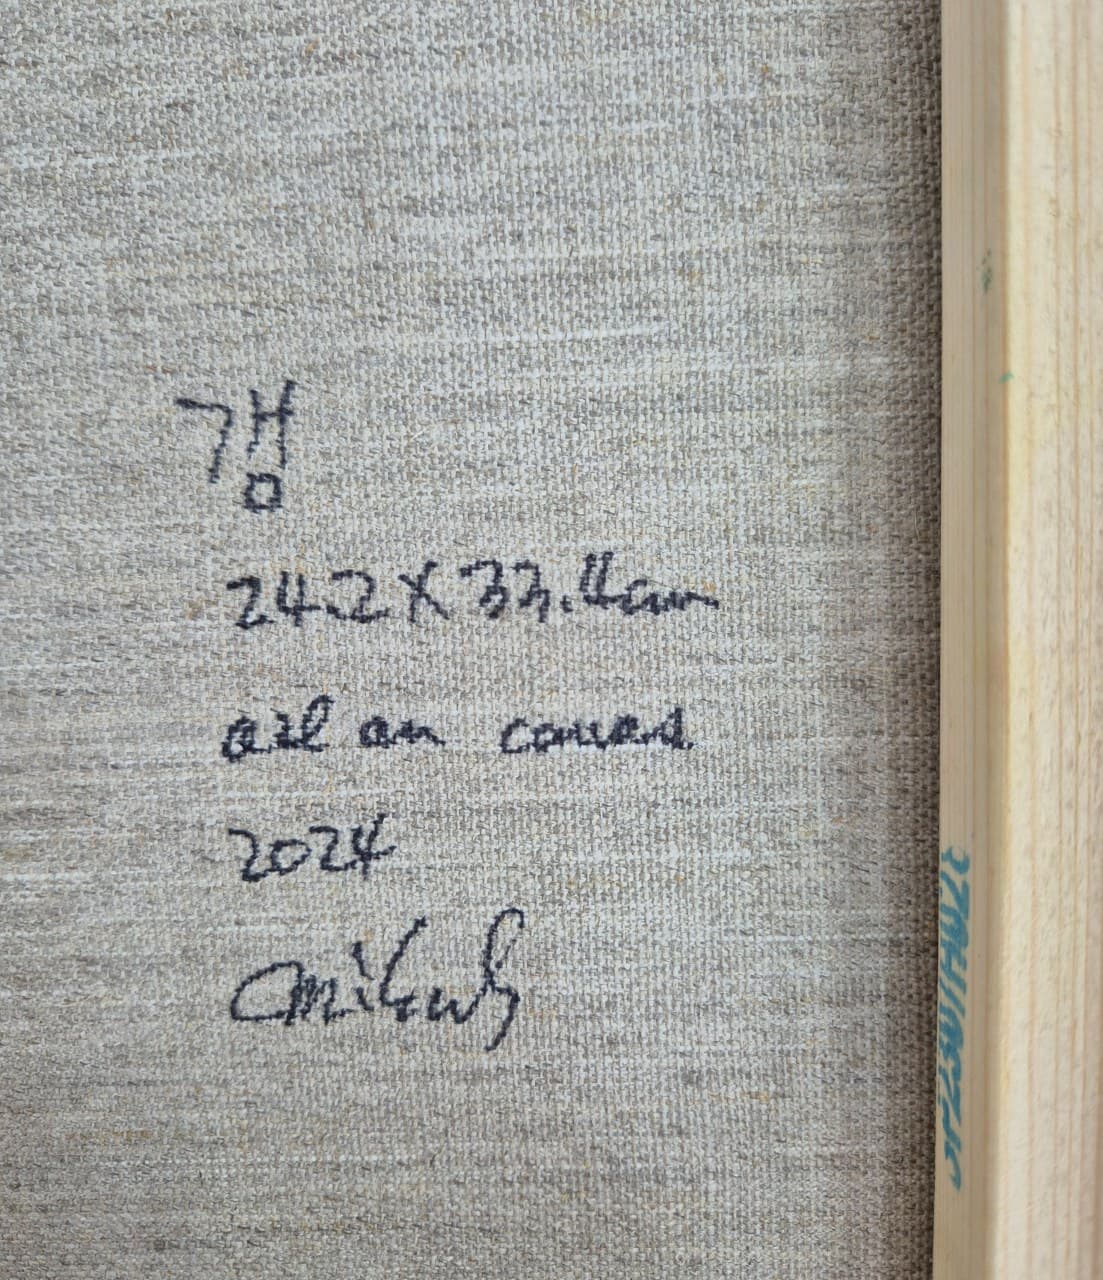 갬
24.2 X 33.4cm
oil on canvas
2024